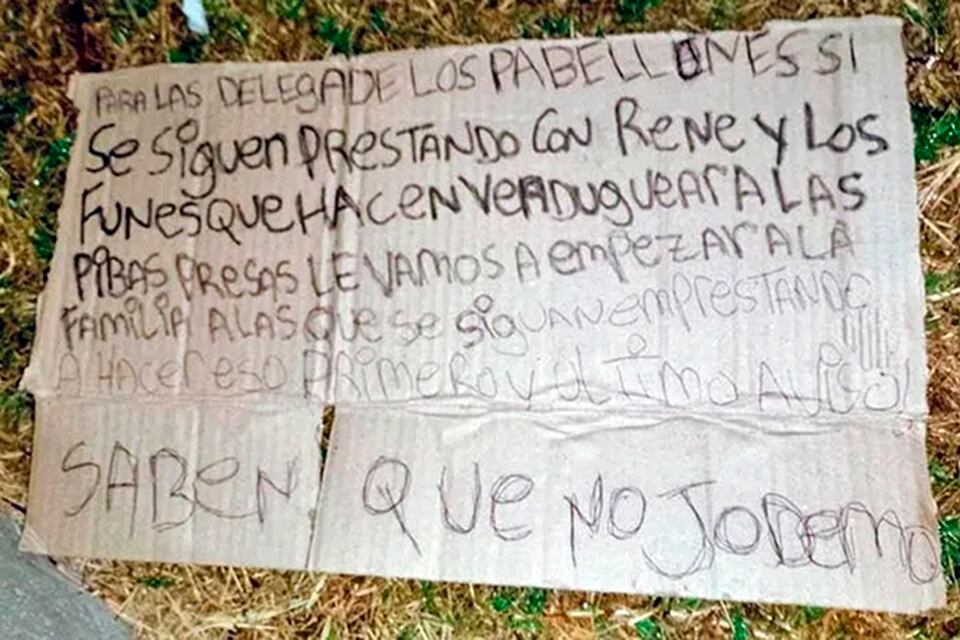 PARA LAS DELEGADE LOS PABELLONES SI
Se SiGuen PRESTANDO CON ReNe Y LOS
FUNES QUE HACEN VERDUGUEAR A LAS
PIBAS PRESAS LE VAMOS A EMPEZAR A LA
FAMILIA A LAS QUE Se SiGUAN EMPRESTANDO
A HACER ESO PRIMERO Y ULTIMO AVISO!
SABEN QUE NO JODEMO